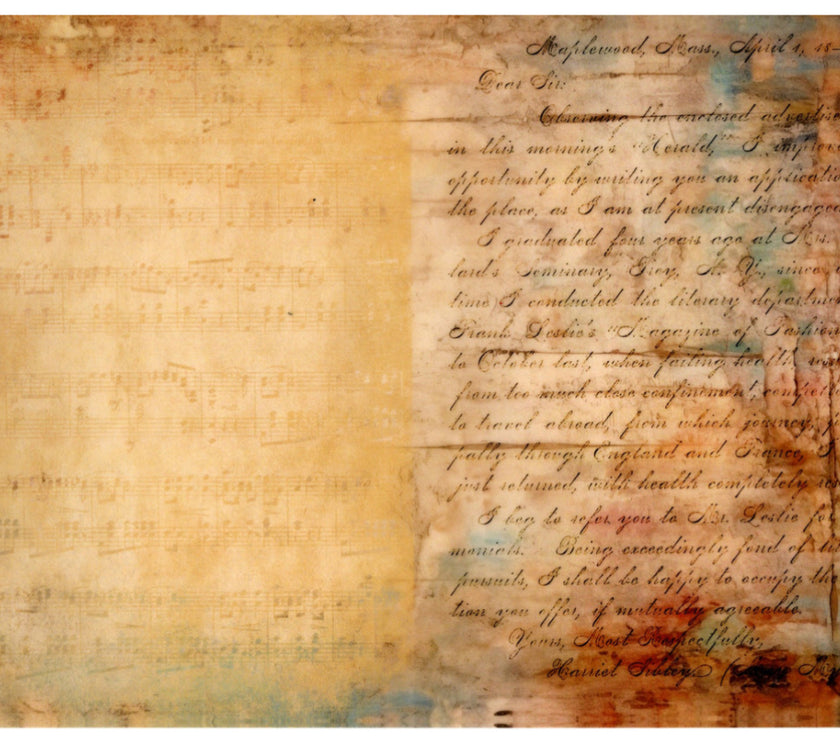 Maplewood, Mass., April 1, 18—
Dear Sir:
Observing the enclosed advertise
in this morning's "Herald," I improv
opportunity by writing you an applicatio
the place, as I am at present disengaged
I graduated four years ago at Mrs.
lard's Seminary, Troy, N. Y., since
time I conducted the literary departme
Frank Leslie's "Magazine of Fashion
to October last, when failing health, res
from too much close confinement, compelle
to travel abroad, from which journey, p
pally through England and France, I
just returned, with health completely res
I beg to refer you to Mr. Leslie for
monials. Being exceedingly fond of lit
pursuits, I shall be happy to occupy the
tion you offer, if mutually agreeable.
Yours, Most Respectfully,
Harriet Sibley.